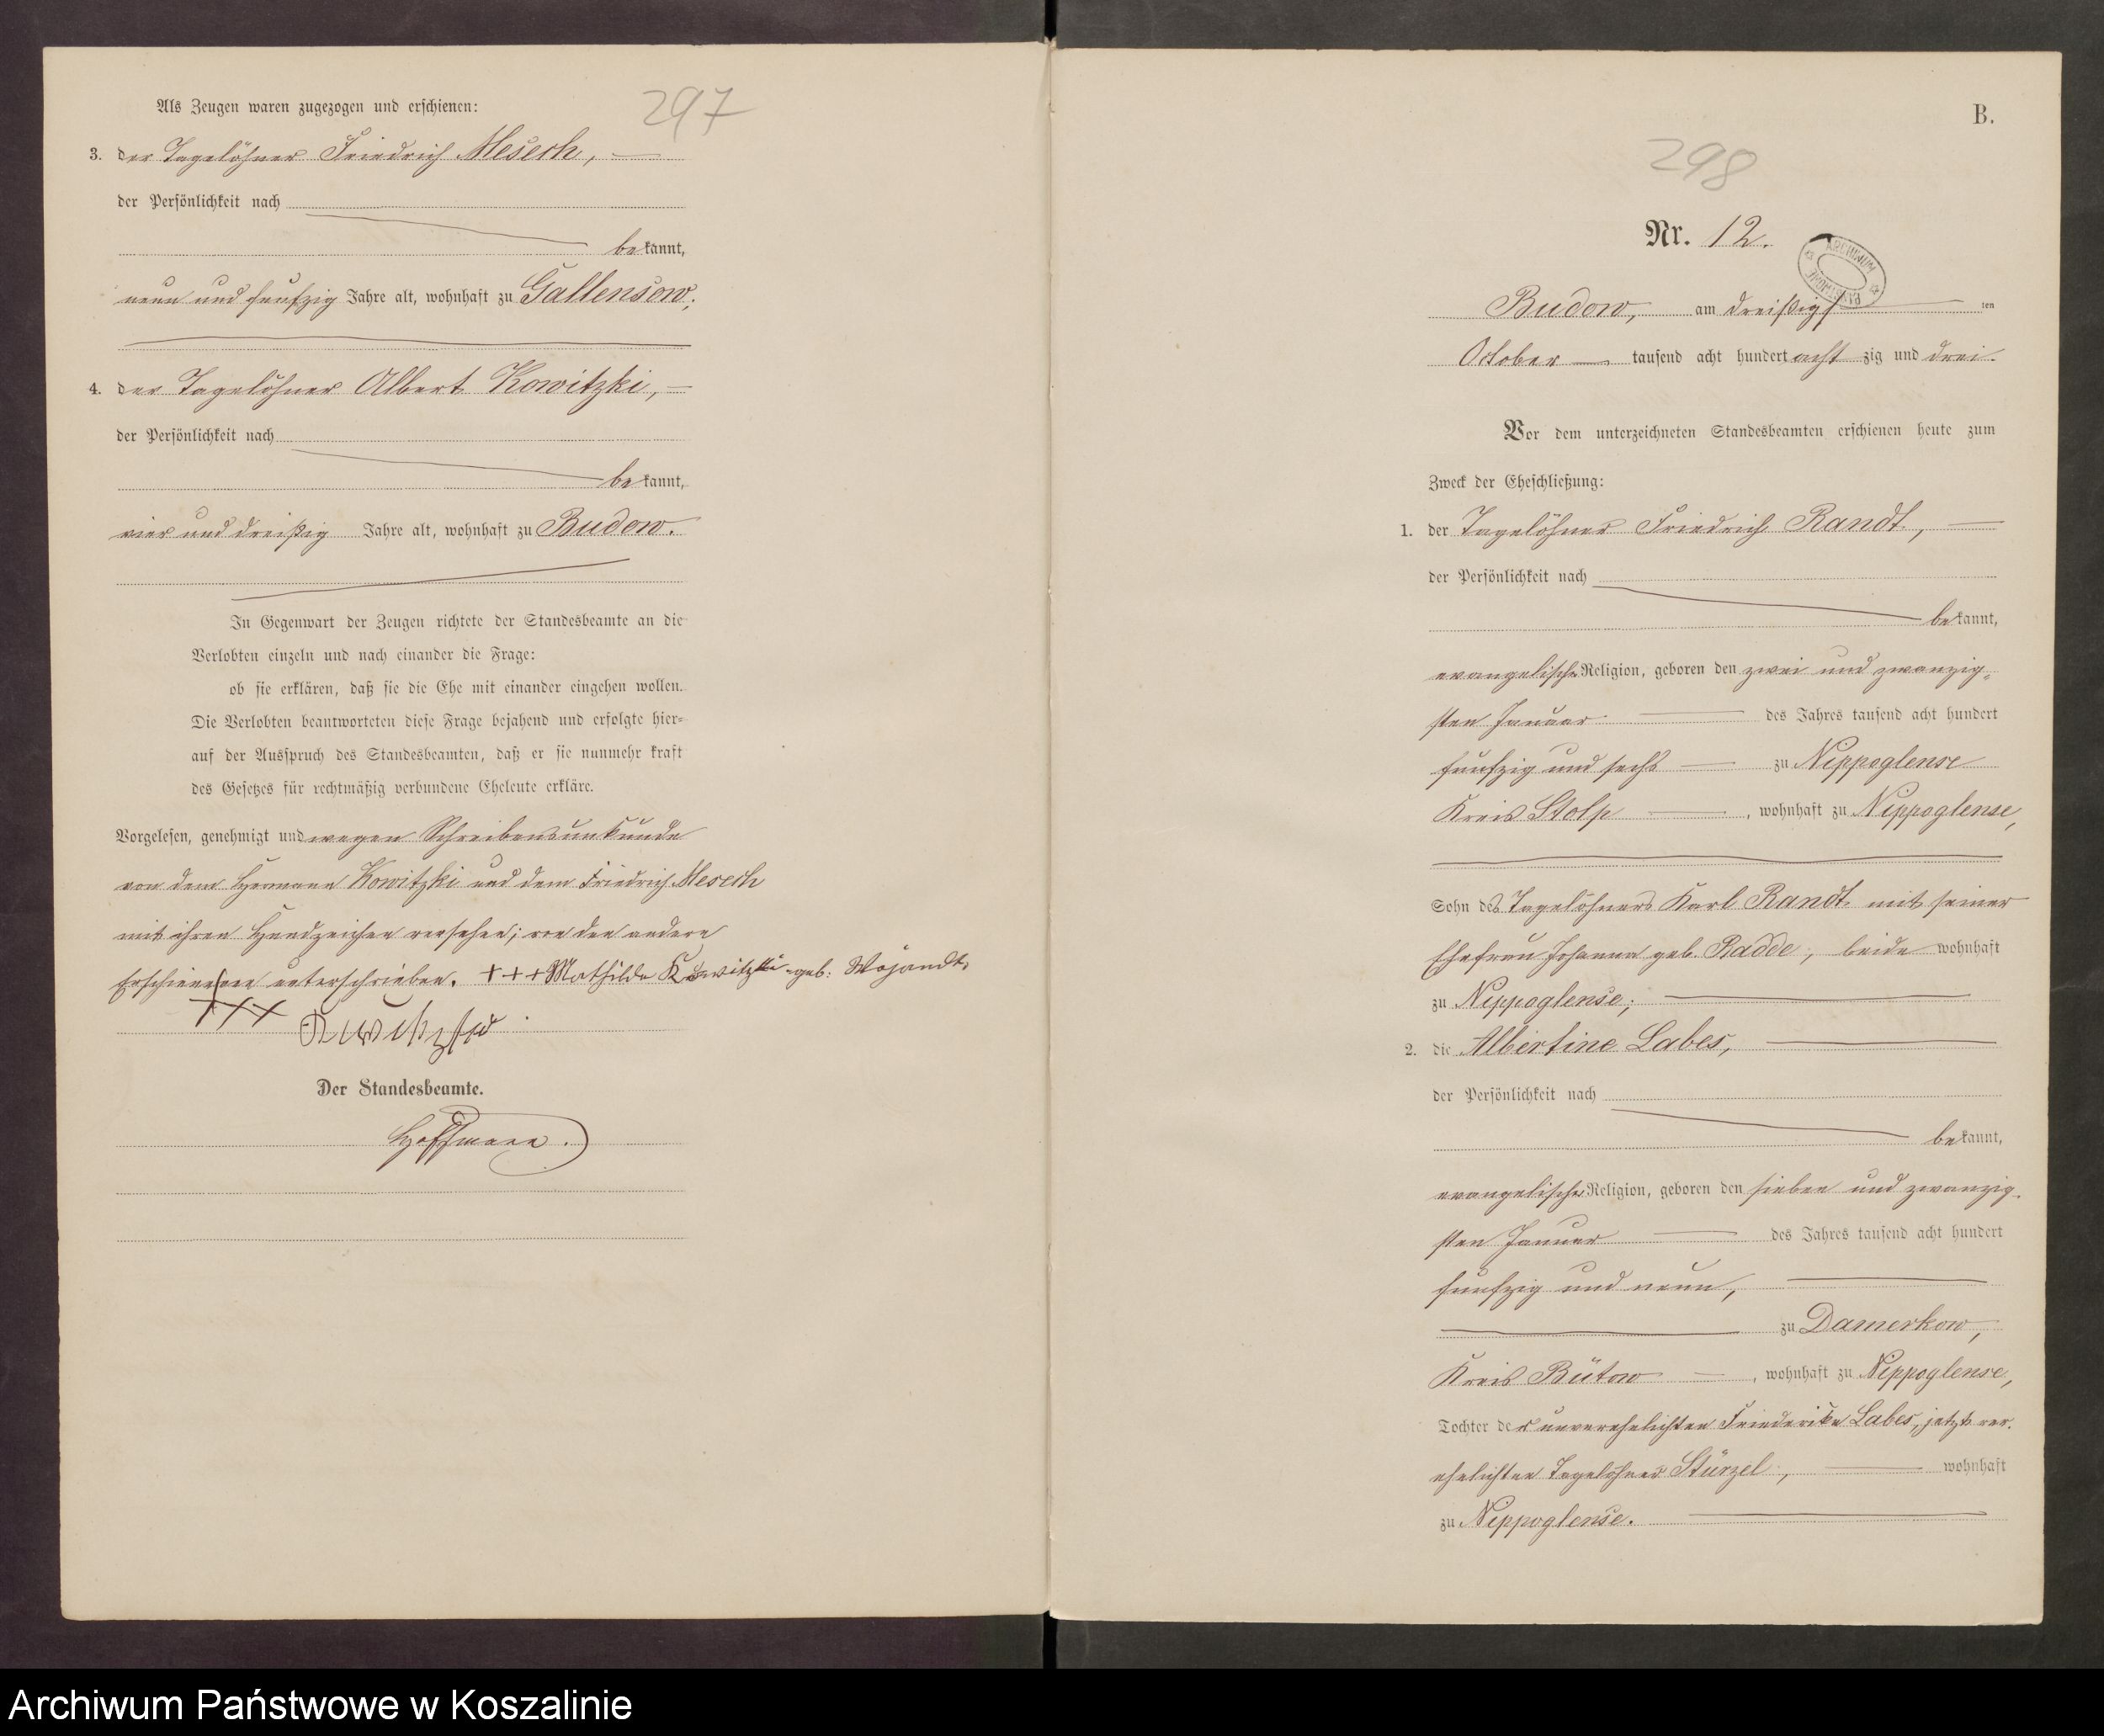 297
Als Zeugen waren zugezogen und erschienen:
3. der Tagelöhner Friedrich Mesech,
der Persönlichkeit nach
bekannt,
neun und funfzig Jahre alt, wohnhaft zu Gallensow;
4. der Tagelöhner Albert Kowitzki,
der Persönlichkeit nach
bekannt,
vier und dreißig Jahre alt, wohnhaft zu Budow.
In Gegenwart der Zeugen richtete der Standesbeamte an die
Verlobten einzeln und nach einander die Frage:
ob sie erklären, daß sie die Ehe mit einander eingehen wollen.
Die Verlobten beantworteten diese Frage bejahend und erfolgte hier-
auf der Ausspruch des Standesbeamten, daß er sie nunmehr kraft
des Gesetzes für rechtmäßig verbundene Eheleute erkläre.
Vorgelesen, genehmigt und wegen Schreibensunkunde
von dem Hermann Kowitzki und dem Friedrich Mesech
mit ihren Handzeichen versehen; von den andern
Erschienenen unterschrieben. +++ Mathilde Kowitzki geb: Wojandt
+++
Der Standesbeamte.
Hoffmann.
B.
298
Nr. 12.
ARCHIWUM
Budow, am dreißigsten
October tausend acht hundert acht zig und drei.
Vor dem unterzeichneten Standesbeamten erschienen heute zum
Zweck der Eheschließung:
1. der Tagelöhner Friedrich Randt,
der Persönlichkeit nach
bekannt,
evangelischer Religion, geboren den zwei und zwanzig-
sten Januar des Jahres tausend acht hundert
funfzig und sechs zu Nippoglense
Kreis Stolp, wohnhaft zu Nippoglense,
Sohn des Tagelöhners Karl Randt mit seiner
Ehefrau Johanna geb. Radde, beide wohnhaft
zu Nippoglense;
2. die Albertine Labes,
der Persönlichkeit nach
bekannt,
evangelischer Religion, geboren den sieben und zwanzig-
sten Januar des Jahres tausend acht hundert
funfzig und neun,
zu Damerkow,
Kreis Bütow, wohnhaft zu Nippoglense,
Tochter der unverehelichten Friederike Labes, jetzt ver-
ehelichten Tagelöhner Stürzel, wohnhaft
zu Nippoglense.
Archiwum Państwowe w Koszalinie